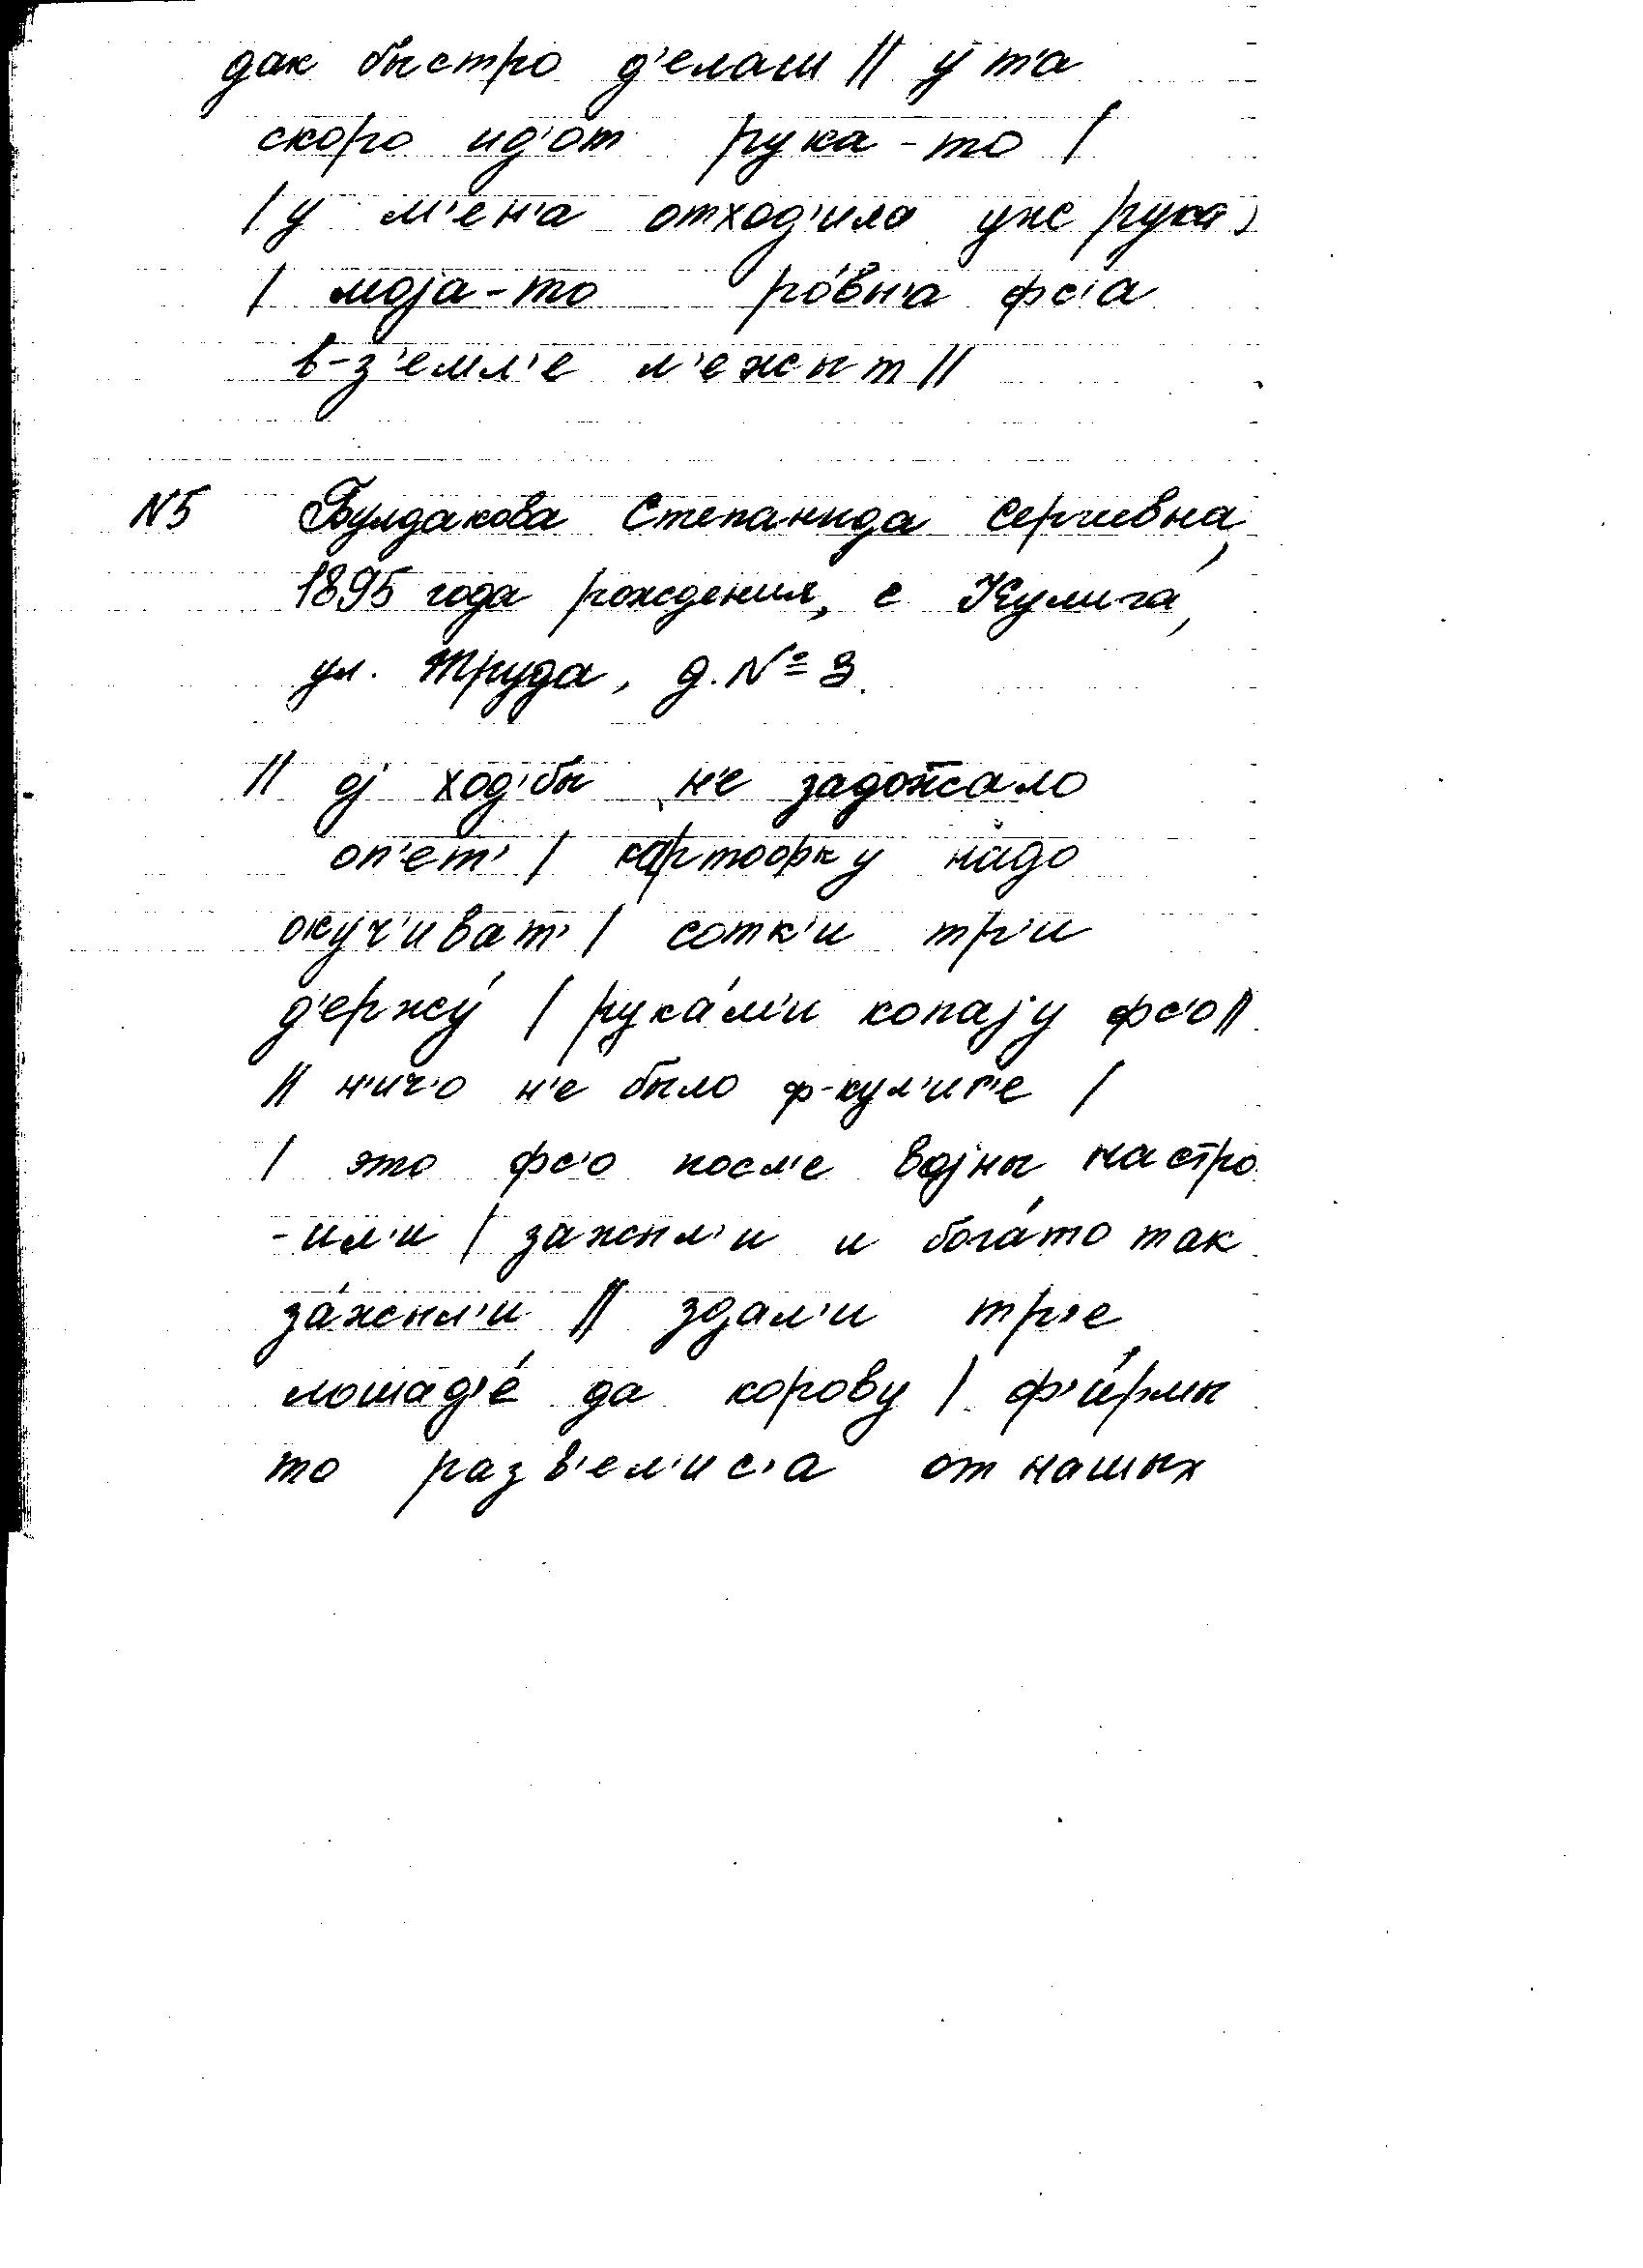 дак быстро д'елаш // у т'а
скоро ид'от рука-то /
/ у м'ен'а отход'ила уж рука,
/ моја-то ро́вн'а фс'а
в-з'емл'е л'ежыт //
N5 Булдакова Степанида Сергиевна,
1895 года рождения, с Кулига,
ул. Труда, д. №3.
// ој ход'бы н'е
оп'ет' / картоорку на́до
окуч'иват' / сотк'и тр'и
д'ержу́ / рука́м'и копају фс'о //
// н'ич'о н'е было ф-кул'иг'е /
/ это фс'о посл'е војны настро
-ил'и / зажыл'и и бога́то так
за́жыл'и // здал'и тр'е
лошад'е́ да корову / ф'и́рмы
то разв'ел'ис'а от нашых